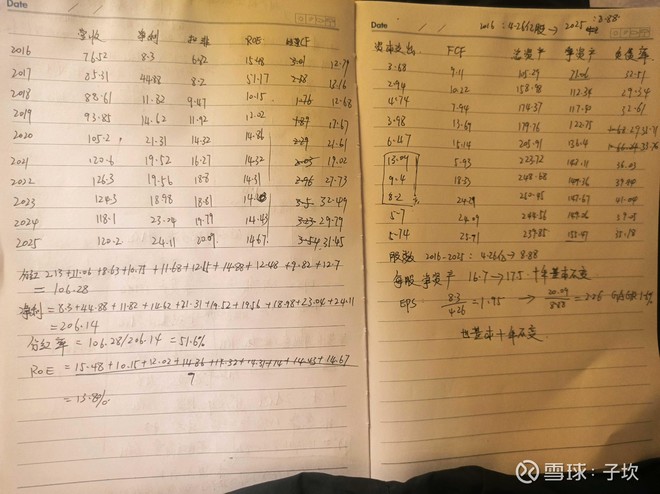 Date
营收 净利 扣非 ROE 经营CF
2016 76.52 8.3 6.82 15.48 12.79
2017 85.31 44.88 8.2 51.17 13.16
2018 88.61 11.82 9.47 10.15 12.68
2019 93.85 14.62 11.92 12.02 17.67
2020 105.2 21.31 14.32 14.86 21.61
2021 120.6 19.52 16.27 14.32 19.02
2022 126.3 19.56 18.8 14.31 27.73
2023 124.3 18.98 18.61 32.49
2024 118.1 23.04 19.79 14.43 29.79
2025 120.2 24.11 20.09 14.67 31.45
分红 2.13+11.06+8.63+10.75+11.68+12.15+14.88+12.48+9.82+12.7
= 106.28
净利=8.3+44.88+11.82+14.62+21.31+19.52+19.56+18.98+23.04+24.11
=206.14
分红率 = 106.28/206.14 = 51.6%
ROE = 15.48+10.15+12.02+14.86+14.32+14.31+14+14.43+14.67
9
=13.80%
Date
2016:4.26亿股→2025:8.88
资本支出 FCF 总资产 净资产 负债率
3.68 9.11 105.29 71.06 32.51
2.94 10.22 158.98 112.34 29.34
4.74 7.94 174.37 117.51 32.61
3.98 13.69 179.76 122.75
6.47 15.14 205.91 136.4
13.09 5.93 223.72 143.11 36.03
9.4 18.33 248.68 149.36 39.94
8.2 24.29 250.45 147.67 41.04
5.7 24.09 244.56 149.06
5.74 25.71 239.85 155.47 35.18
股数 2016-2025: 4.26亿→8.88
每股净资产 16.7→17.5 十年基本不变
EPS: 8.3/4.26 = 1.95 → 20.09/8.88 = 2.26
也基本十年不变
雪球:子坎